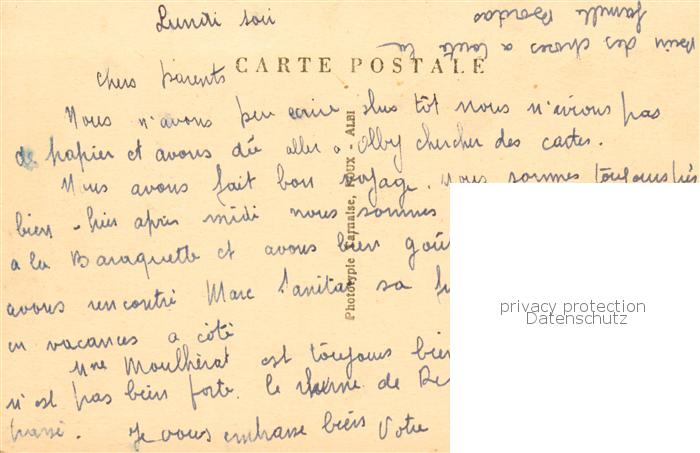 Lundi soir
bien des choses a toute la
famille Bordas
CARTE POSTALE
Chers parents
Nous n'avons peu ecrire plus tôt nous n'avions pas
de papier et avons dû aller a Alby chercher des cartes.
Nous avons fait bon voyage. Nous sommes toujours très
bien - hier après midi nous sommes
a la Baraquette et avons bien goût
avons rencontré Marc sa
en vacances a côté
Mme Moulhérat est toujours bien
n'est pas bien forte. Le de Re
passé. Je vous embrasse biens Votre
Phototypie Tarnaise, POUX - ALBI
privacy protection
Datenschutz